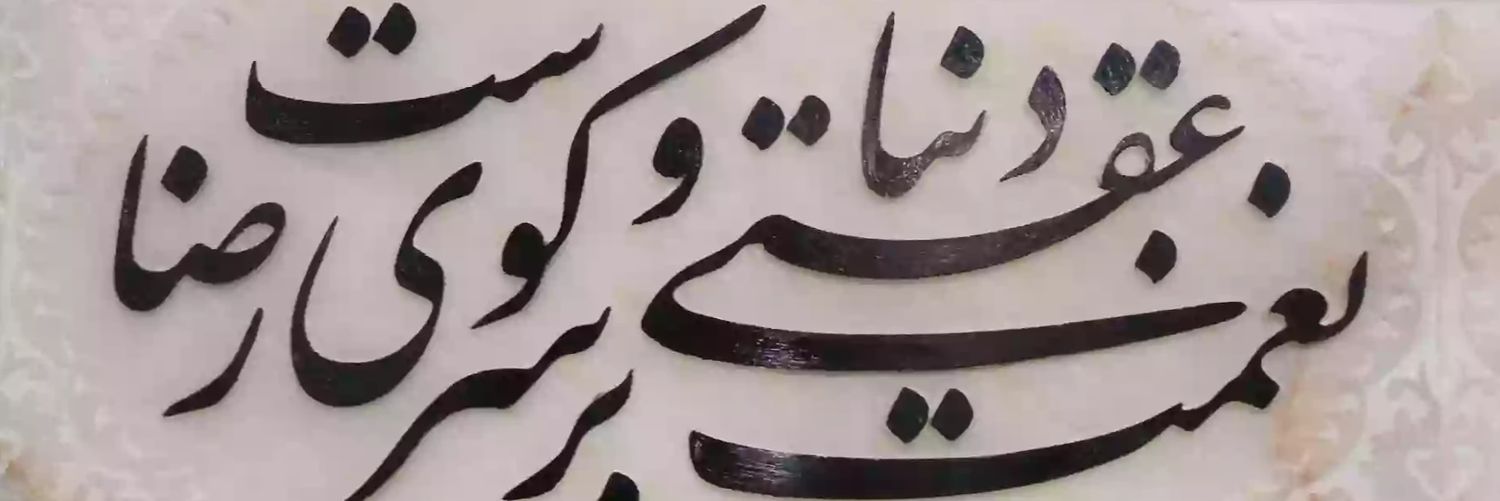 نعمت دنیا و عقبی بر سر کوی رضاست